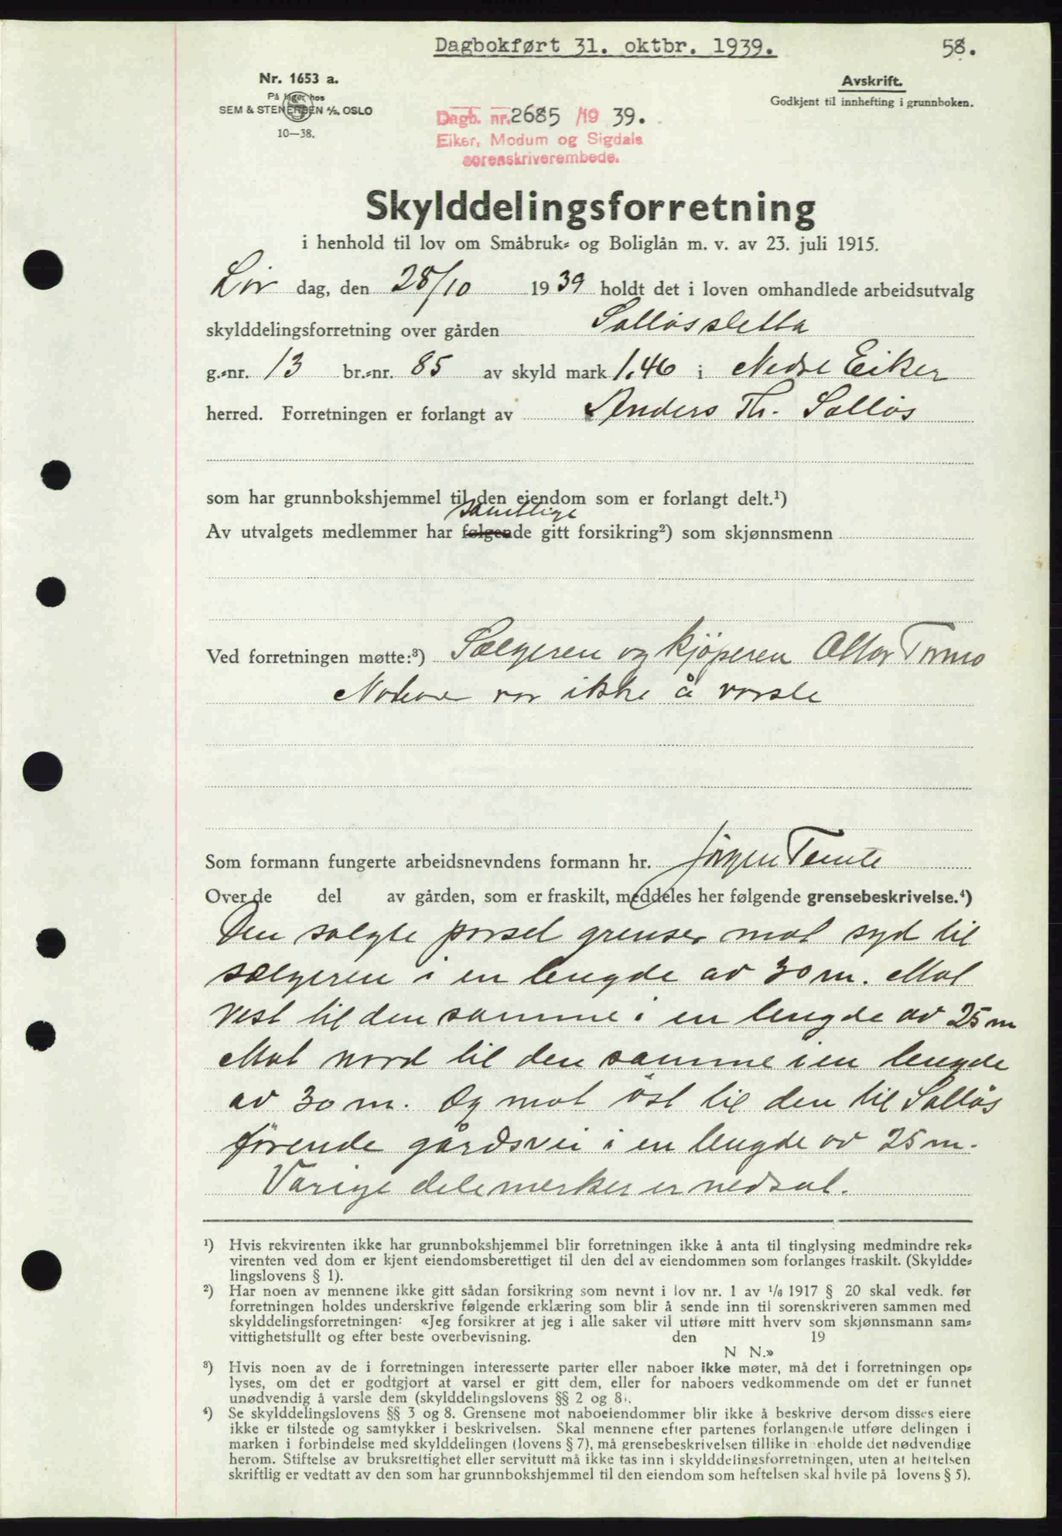 Dagbokført 31. oktbr. 1939.
58.
Nr. 1653 a.
På lager hos
SEM & STENERSEN A/S. OSLO
10—38.
Avskrift.
Godkjent til innhefting i grunnboken.
Dagb. nr. 2685 /19 39.
Eiker, Modum og Sigdals
sorenskriverembede.
Skylddelingsforretning
i henhold til lov om Småbruk- og Boliglån m. v. av 23. juli 1915.
Lør dag, den 28/10 19 39 holdt det i loven omhandlede arbeidsutvalg
skylddelingsforretning over gården Solløssletta
g.-nr. 13 br.-nr. 85 av skyld mark 1.46 i Nedre Eiker
herred. Forretningen er forlangt av Anders Th. Solløs
som har grunnbokshjemmel til den eiendom som er forlangt delt.¹)
samtlige
Av utvalgets medlemmer har følgende gitt forsikring²) som skjønnsmenn
Ved forretningen møtte:³) Sælgeren og kjøperen Tormo
var ikke å varsle
Som formann fungerte arbeidsnevndens formann hr. Jørgen Temte
Over de del av gården, som er fraskilt, meddeles her følgende grensebeskrivelse.⁴)
Den solgte parsel grenser mot syd til
sælgeren i en lengde av 30 m. Mot
vest til den samme i en lengde av 25 m
Mot nord til den samme i en lengde
av 30 m. Og mot øst til den til Solløs
førende gårdsvei i en lengde av 25 m.
Varige delemerker er nedsat.
¹) Hvis rekvirenten ikke har grunnbokshjemmel blir forretningen ikke å anta til tinglysing medmindre rek-
virenten ved dom er kjent eiendomsberettiget til den del av eiendommen som forlanges fraskilt. (Skyldde-
lingslovens § 1).
²) Har noen av mennene ikke gitt sådan forsikring som nevnt i lov nr. 1 av 1/6 1917 § 20 skal vedk. før
forretningen holdes underskrive følgende erklæring som blir å sende inn til sorenskriveren sammen med
skylddelingsforretningen: «Jeg forsikrer at jeg i alle saker vil utføre mitt hverv som skjønnsmann sam-
vittighetsfullt og efter beste overbevisning. den 19
N N.»
³) Hvis noen av de i forretningen interesserte parter eller naboer ikke møter, må det i forretningen op-
lyses, om det er godtgjort at varsel er gitt dem, eller for naboers vedkommende om det er funnet
unødvendig å varsle dem (skylddelingslovens §§ 2 og 8).
⁴) Se skylddelingslovens §§ 3 og 8. Grensene mot naboeiendommer blir ikke å beskrive dersom disses eiere
ikke er tilstede og samtykker i beskrivelsen. Skal mennene efter partenes forlangende utføre delingen i
marken i forbindelse med skylddelingen (lovens § 7), må grensebeskrivelsen tillike inneholde det nødvendige
herom. Stiftelse av bruksrettighet eller servitutt må ikke tas inn i skylddelingsforretningen, uten at heftelsen
skriftlig er vedtatt av den som har grunnbokshjemmel til den eiendom som heftelsen skal hvile på lovens § 5).